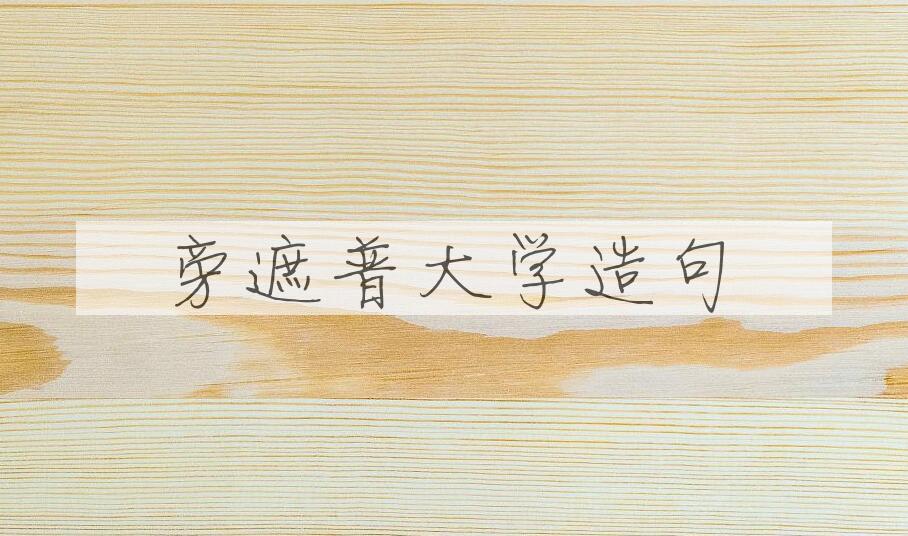 旁遮普大学造句